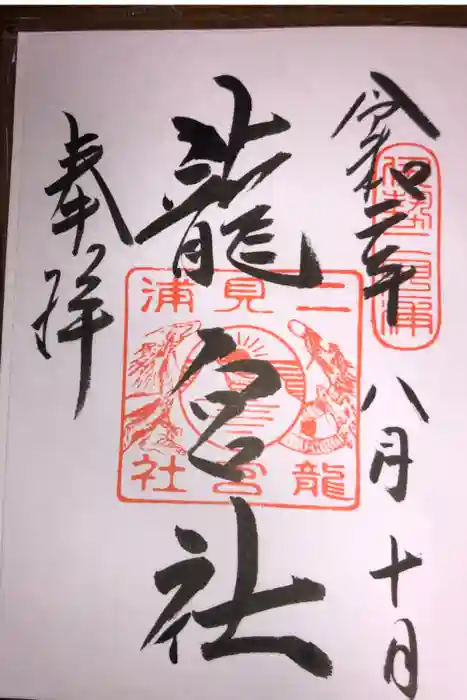 伊勢二見浦
令和二年八月十日
龍宮社
二見浦
龍宮社
奉拝